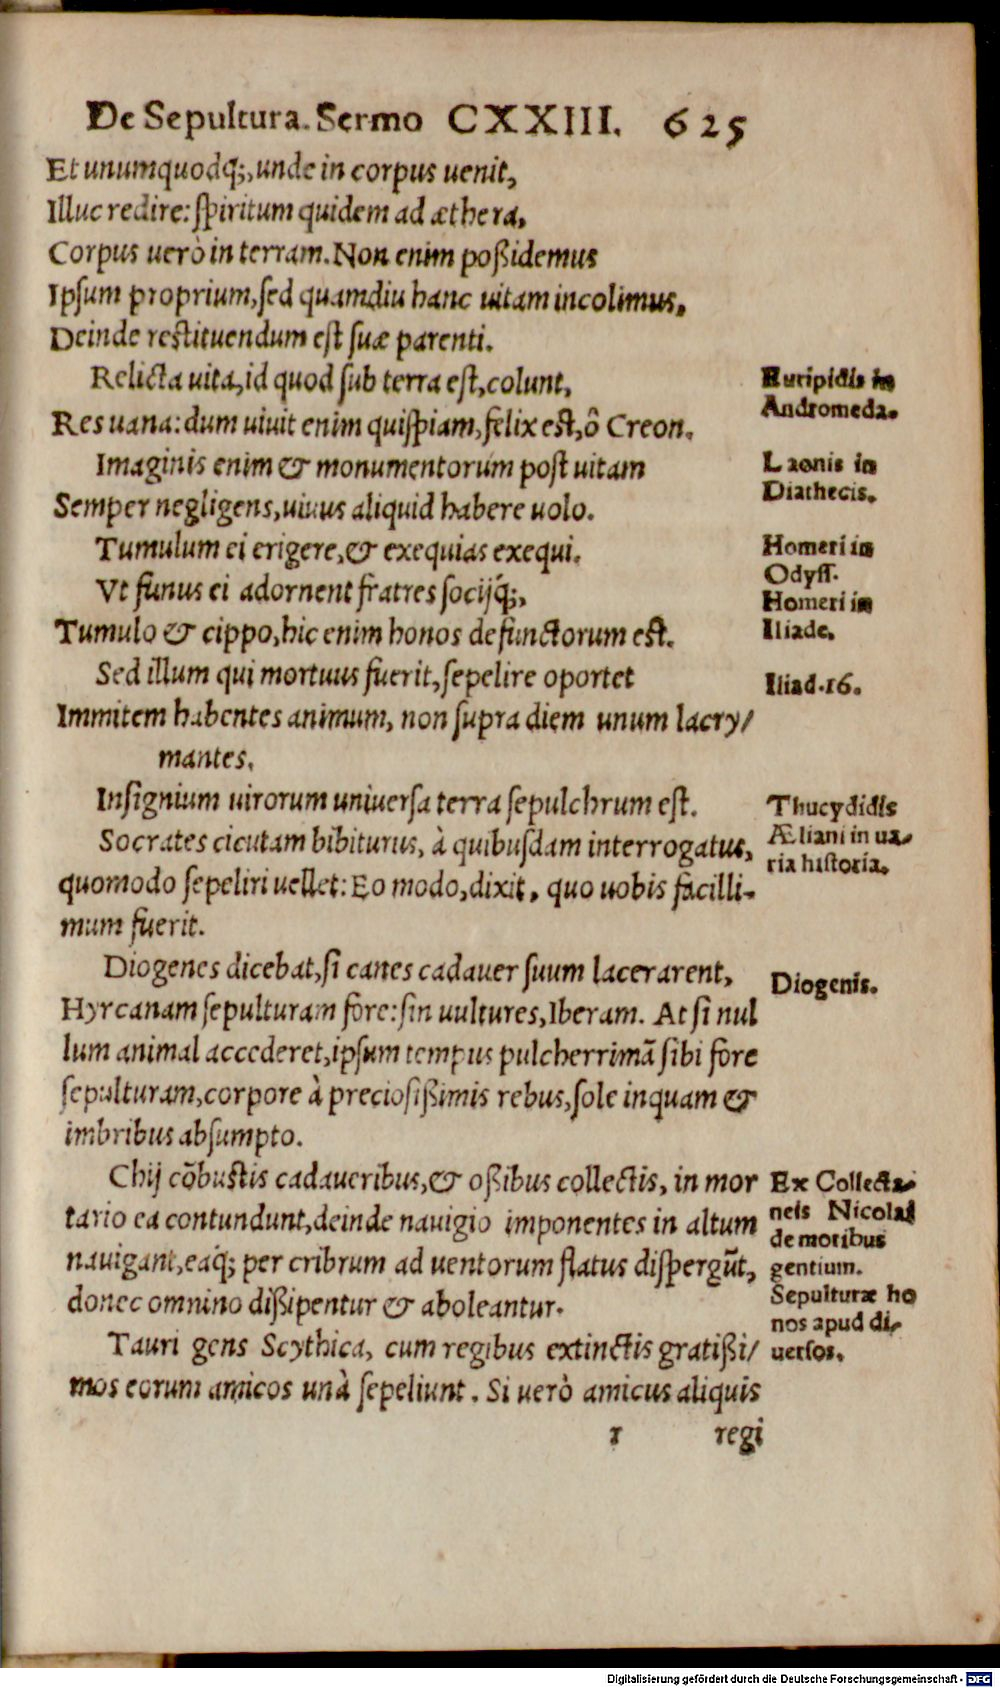 De Sepultura. Sermo CXXIII. 625
Et unumquodq;, unde in corpus uenit,
Illuc redire: ſpiritum quidem ad æthera,
Corpus uerò in terram. Non enim poßidemus
Ipſum proprium, ſed quamdiu hanc uitam incolimus,
Deinde reſtituendum eſt ſuæ parenti.
Relicta uita, id quod ſub terra eſt, colunt,
Euripidis in
Andromeda.
Res uana: dum uiuit enim quiſpiam, felix eſt, ô Creon.
Imaginis enim & monumentorum poſt uitam
Laonis in
Diathecis.
Semper negligens, uiuus aliquid habere uolo.
Tumulum ei erigere, & exequias exequi.
Homeri in
Odyſſ.
Vt funus ei adornent fratres socijq́;,
Homeri in
Iliade.
Tumulo & cippo, hic enim honos defunctorum eſt.
Sed illum qui mortuus fuerit, ſepelire oportet
Iliad. 16.
Immitem habentes animum, non ſupra diem unum lacry/
mantes.
Inſignium uirorum uniuerſa terra ſepulchrum eſt.
Thucydidis
Socrates cicutam bibiturus, à quibuſdam interrogatus,
Æliani in ua-
ria historia.
quomodo ſepeliri uellet: Eo modo, dixit, quo uobis facilli-
mum fuerit.
Diogenes dicebat, ſi canes cadauer ſuum lacerarent,
Diogenis.
Hyrcanam ſepulturam fore: ſin uultures, Iberam. At ſi nul
lum animal accederet, ipſum tempus pulcherrimã ſibi fore
ſepulturam, corpore à precioſißimis rebus, ſole inquam &
imbribus abſumpto.
Chij cõbuſtis cadaueribus, & oßibus collectis, in mor
Ex Collecta-
neis Nicolai
de moribus
gentium.
tario ea contundunt, deinde nauigio imponentes in altum
nauigant, eaq́; per cribrum ad uentorum flatus diſpergũt,
donec omnino dißipentur & aboleantur.
Sepulturæ ho
nos apud di-
uerſos.
Tauri gens Scythica, cum regibus extinctis gratißi/
mos eorum amicos unà ſepeliunt. Si uerò amicus aliquis
r regi
Digitalisierung gefördert durch die Deutsche Forschungsgemeinschaft - DFG